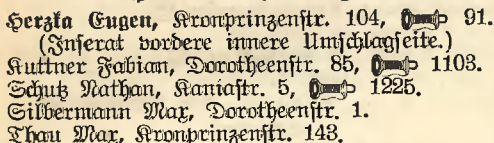 Herzka Eugen, Kronprinzenstr. 104, 91.
(Inserat vordere innere Umschlagseite.)
Kuttner Fabian, Dorotheenstr. 85, 1103.
Schutz Nathan, Kaniastr. 5, 1225.
Silbermann Max, Dorotheenstr. 1.
Thau Max, Kronprinzenstr. 143.